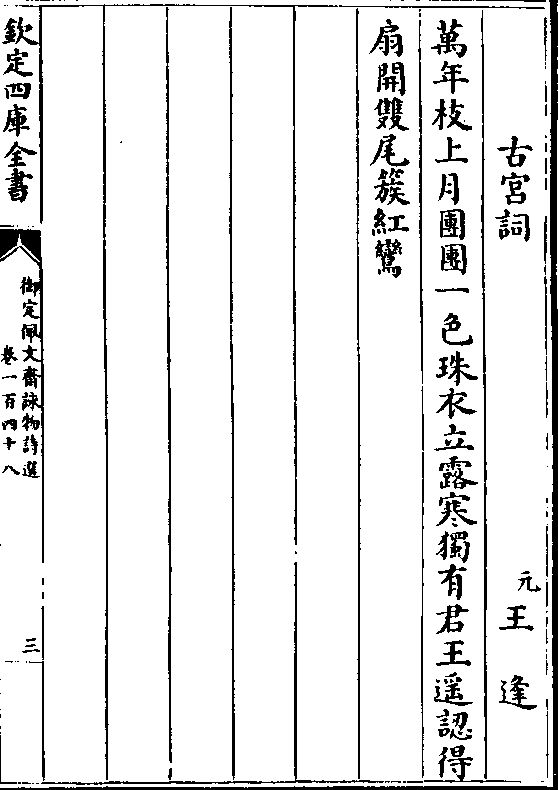 古宮詞
元王逢
萬年枝上月團團一色珠衣立露寒獨有君王遥認得
扇開雙尾簇紅鸞
欽定四庫全書
御定佩文齋詠物詩選
卷一百四十八
三